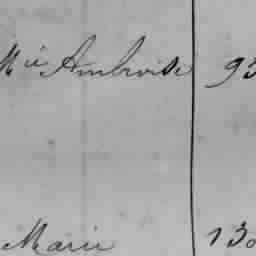 Mie Ambroise 93
Marie 130